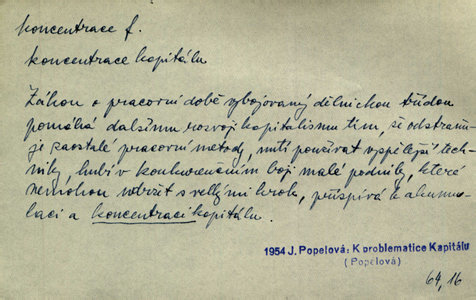 koncentrace f.
koncentrace kapitálu
Zákon o pracovní době vybojovaný dělnickou třídou
pomáhá dalšímu rozvoji kapitalismu tím, že odstraňu-
je zaostalé pracovní metody, nutí používat vyspělejší tech-
niky, hubí v konkurenčním boji malé podniky, které
nemohou udržet s velkými krok, přispívá k akumu-
laci a koncentraci kapitálu.
1954 J. Popelová: K problematice Kapitálu
(Popelová)
64, 16